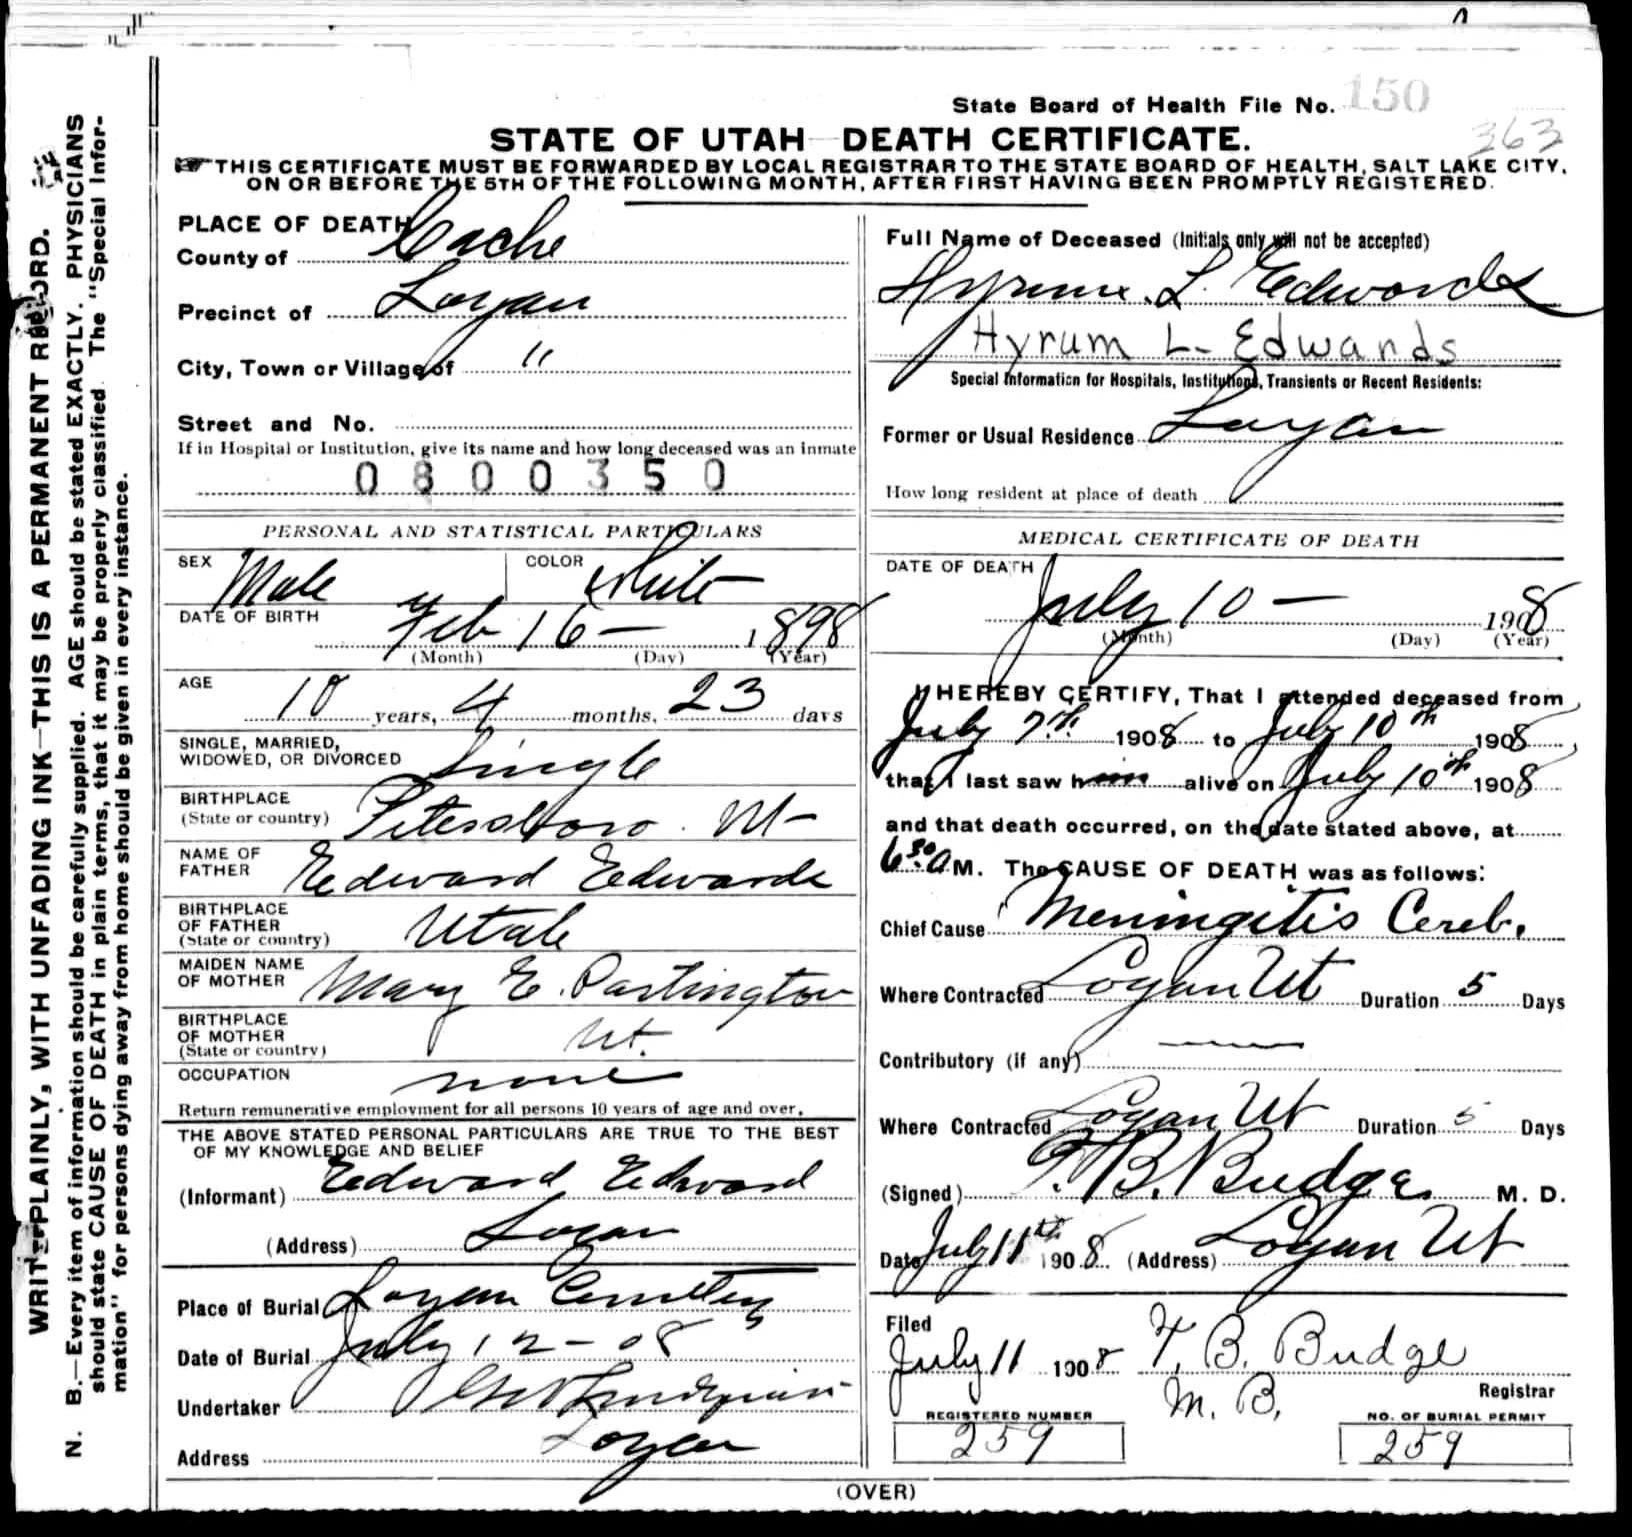 State Board of Health File No. 150
363
STATE OF UTAH—DEATH CERTIFICATE.
THIS CERTIFICATE MUST BE FORWARDED BY LOCAL REGISTRAR TO THE STATE BOARD OF HEALTH, SALT LAKE CITY,
ON OR BEFORE THE 5TH OF THE FOLLOWING MONTH, AFTER FIRST HAVING BEEN PROMPTLY REGISTERED.
WRITE PLAINLY, WITH UNFADING INK—THIS IS A PERMANENT RECORD.
N. B.—Every item of information should be carefully supplied. AGE should be stated EXACTLY. PHYSICIANS
should state CAUSE OF DEATH in plain terms, that it may be properly classified. The "Special Infor-
mation" for persons dying away from home should be given in every instance.
PLACE OF DEATH
County of Cache
Precinct of Logan
City, Town or Village of "
Street and No.
If in Hospital or Institution, give its name and how long deceased was an inmate
0800350
PERSONAL AND STATISTICAL PARTICULARS
SEX Male COLOR White
DATE OF BIRTH Feb 16 — 1898
(Month) (Day) (Year)
AGE 10 years, 4 months, 23 days
SINGLE, MARRIED,
WIDOWED, OR DIVORCED Single
BIRTHPLACE
(State or country) Petersboro
NAME OF
FATHER Edward Edwards
BIRTHPLACE
OF FATHER
(State or country) Utah
MAIDEN NAME
OF MOTHER Mary E. Partington
BIRTHPLACE
OF MOTHER
(State or country) Ut.
OCCUPATION none
Return remunerative employment for all persons 10 years of age and over.
THE ABOVE STATED PERSONAL PARTICULARS ARE TRUE TO THE BEST
OF MY KNOWLEDGE AND BELIEF
(Informant) Edward Edward
(Address) Logan
Place of Burial Logan Cemetery
Date of Burial July 12 - 08
Undertaker
Address Logan
Full Name of Deceased (Initials only will not be accepted)
Hyrum L. Edwards
Hyrum L. Edwards
Special Information for Hospitals, Institutions, Transients or Recent Residents:
Former or Usual Residence Logan
How long resident at place of death
MEDICAL CERTIFICATE OF DEATH
DATE OF DEATH
July 10 — 1908
(Month) (Day) (Year)
I HEREBY CERTIFY, That I attended deceased from
July 7th 1908 to July 10th 1908
that I last saw him alive on July 10th 1908
and that death occurred, on the date stated above, at
6:30 A M. The CAUSE OF DEATH was as follows:
Chief Cause Meningitis Cereb.
Where Contracted Logan Ut Duration 5 Days
Contributory (if any) —
Where Contracted Logan Ut Duration 5 Days
(Signed) T. B. Budge M. D.
Date July 11th 1908 (Address) Logan Ut
Filed
July 11 1908 T. B. Budge
Registrar
M. B.
REGISTERED NUMBER
259
NO. OF BURIAL PERMIT
259
(OVER)